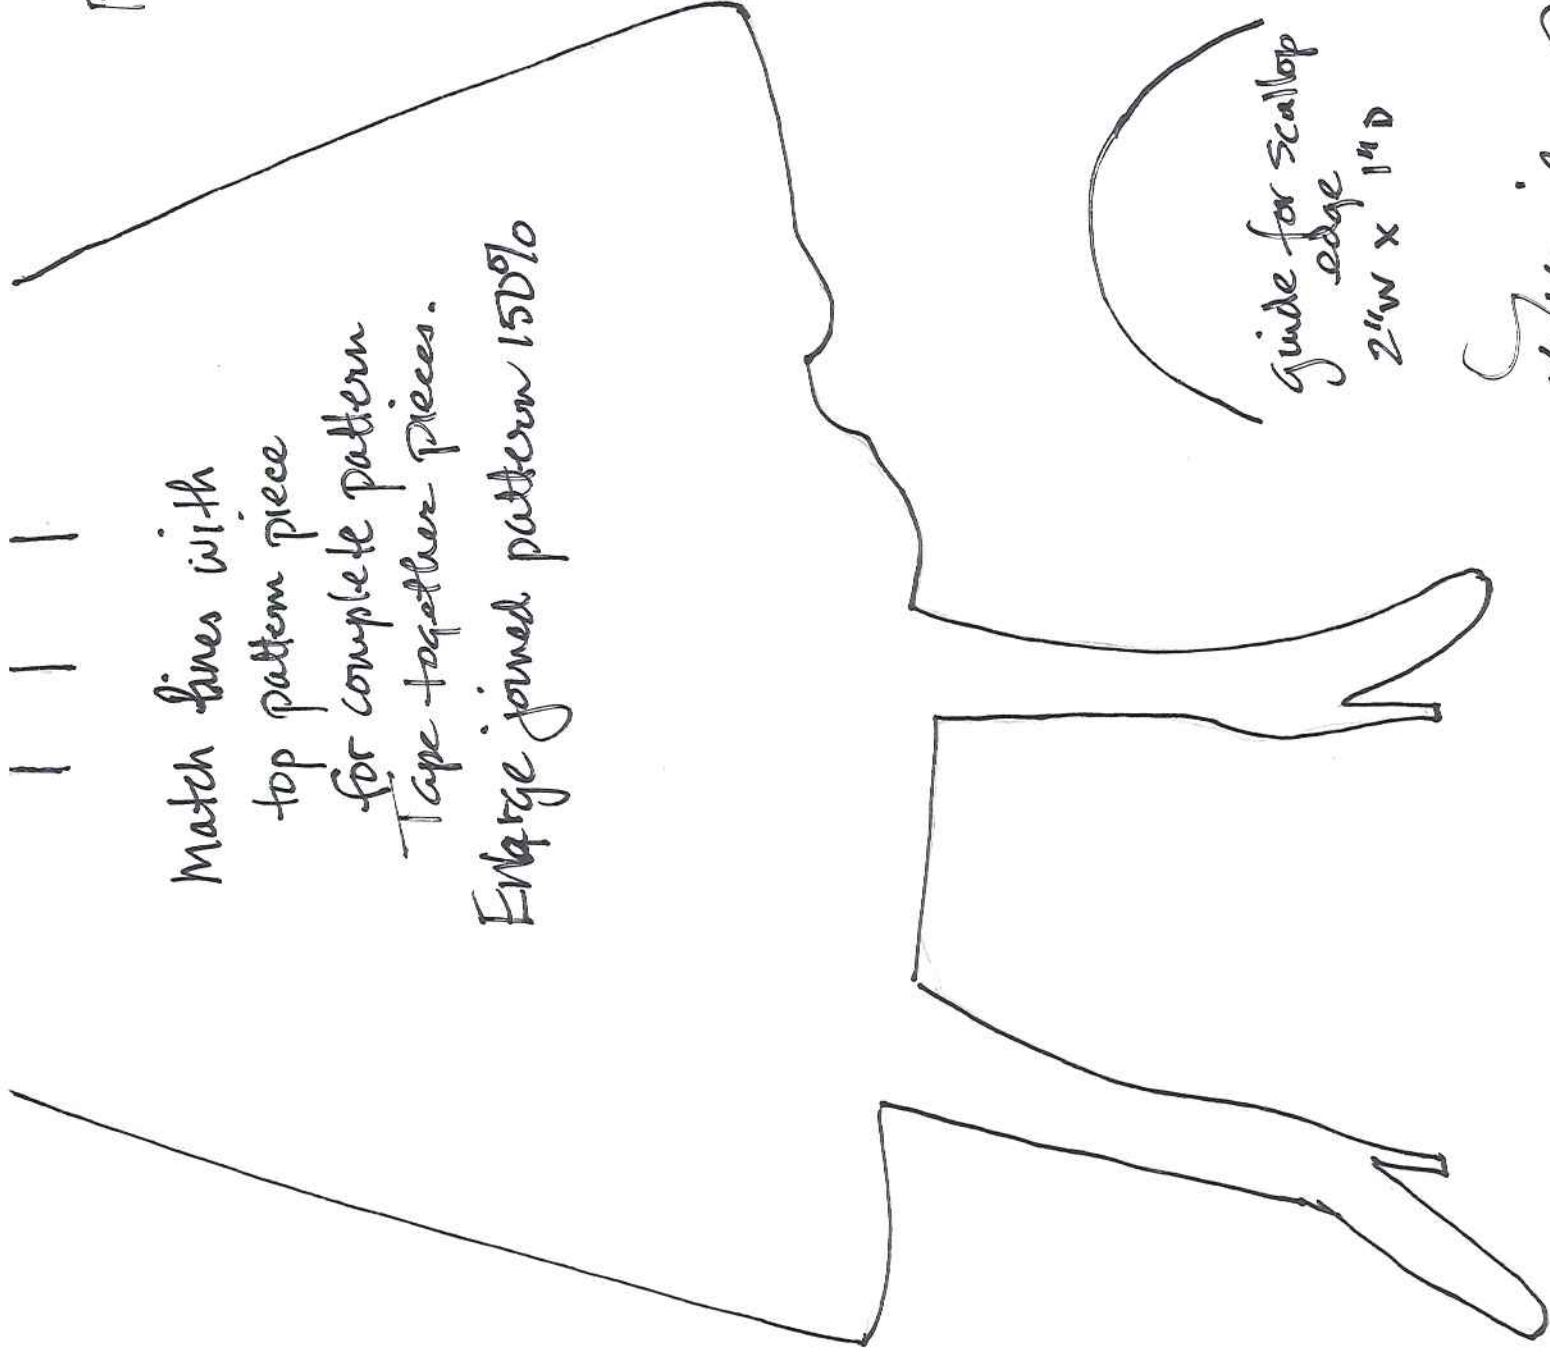 Match lines with
top pattern piece
for complete pattern
Tape together pieces.
Enlarge joined pattern 150%
guide for scallop
edge
2"W x 1"D